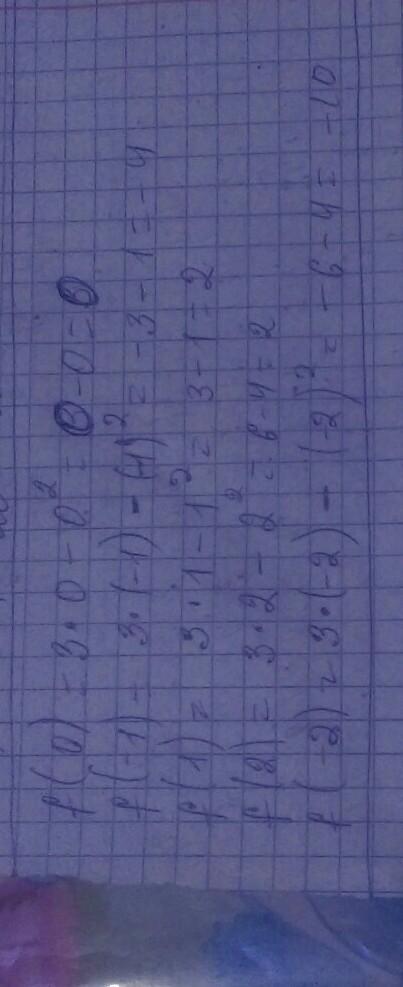 f(0) = 3·0 - 0² = 0 - 0 = 0
f(-1) - 3·(-1) - (-1)² = -3 - 1 = -4
f(1) = 3·1 - 1² = 3 - 1 = 2
f(2) = 3·2 - 2² = 6 - 4 = 2
f(-2) = 3·(-2) - (-2)² = -6 - 4 = -10